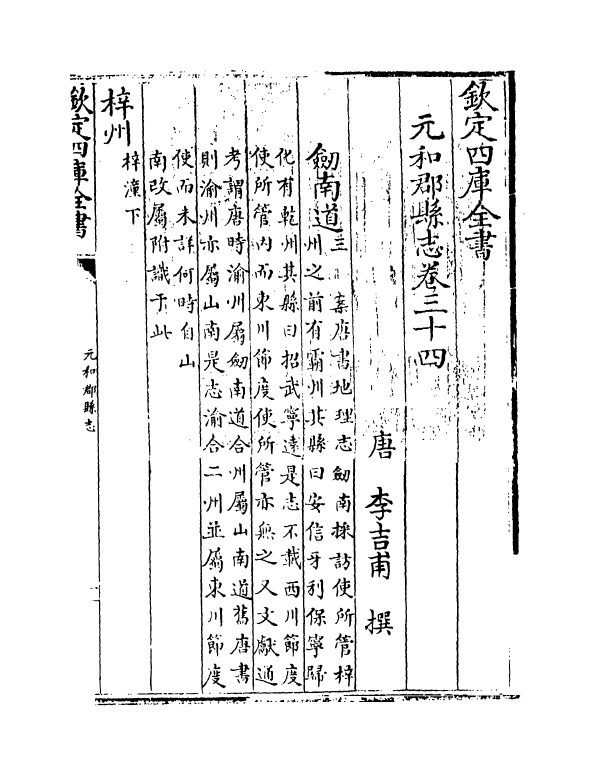 欽定四庫全書
元和郡縣志卷三十四
唐 李吉甫 撰
劒南道三
案唐書地理志劒南採訪使所管梓
州之前有霸州其縣曰安信牙利保寧歸
化有乾州其縣曰招武寧逺是志不載西川節度
使所管内而東川節度使所管亦無之又文獻通
考謂唐時渝州屬劒南道合州屬山南道舊唐書
則渝州亦屬山南是志渝合二州並屬東川節度
使而未詳何時自山
南改屬附識于此
梓州
梓潼下
欽定四庫全書
元和郡縣志